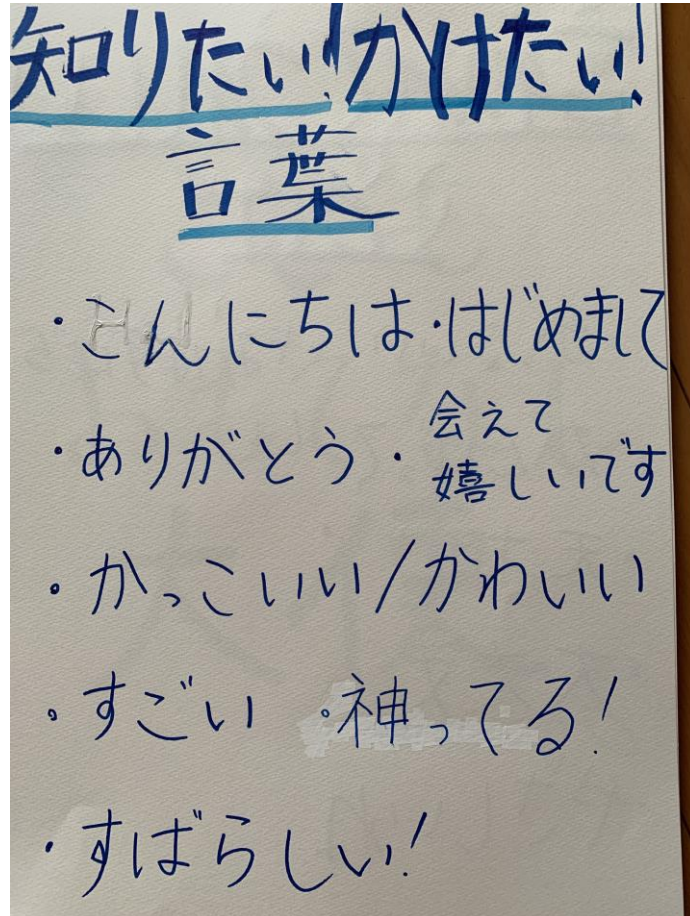 知りたい!かけたい!
言葉
・こんにちは・はじめまして
・ありがとう・会えて
嬉しいです
・かっこいい/かわいい
・すごい ・神ってる!
・すばらしい!